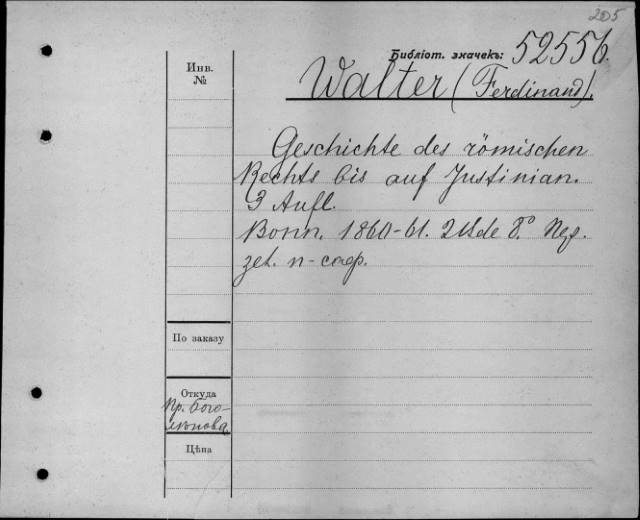 205
Библіот. значекъ: 52556.
Инв.
№
Walter (Ferdinand).
Geschichte des römischen
Rechts bis auf Justinian.
3 Aufl.
Bonn. 1860-61. 2 Bde 8.°
По заказу
Откуда
Пр. Бого-
лѣпова
Цѣна